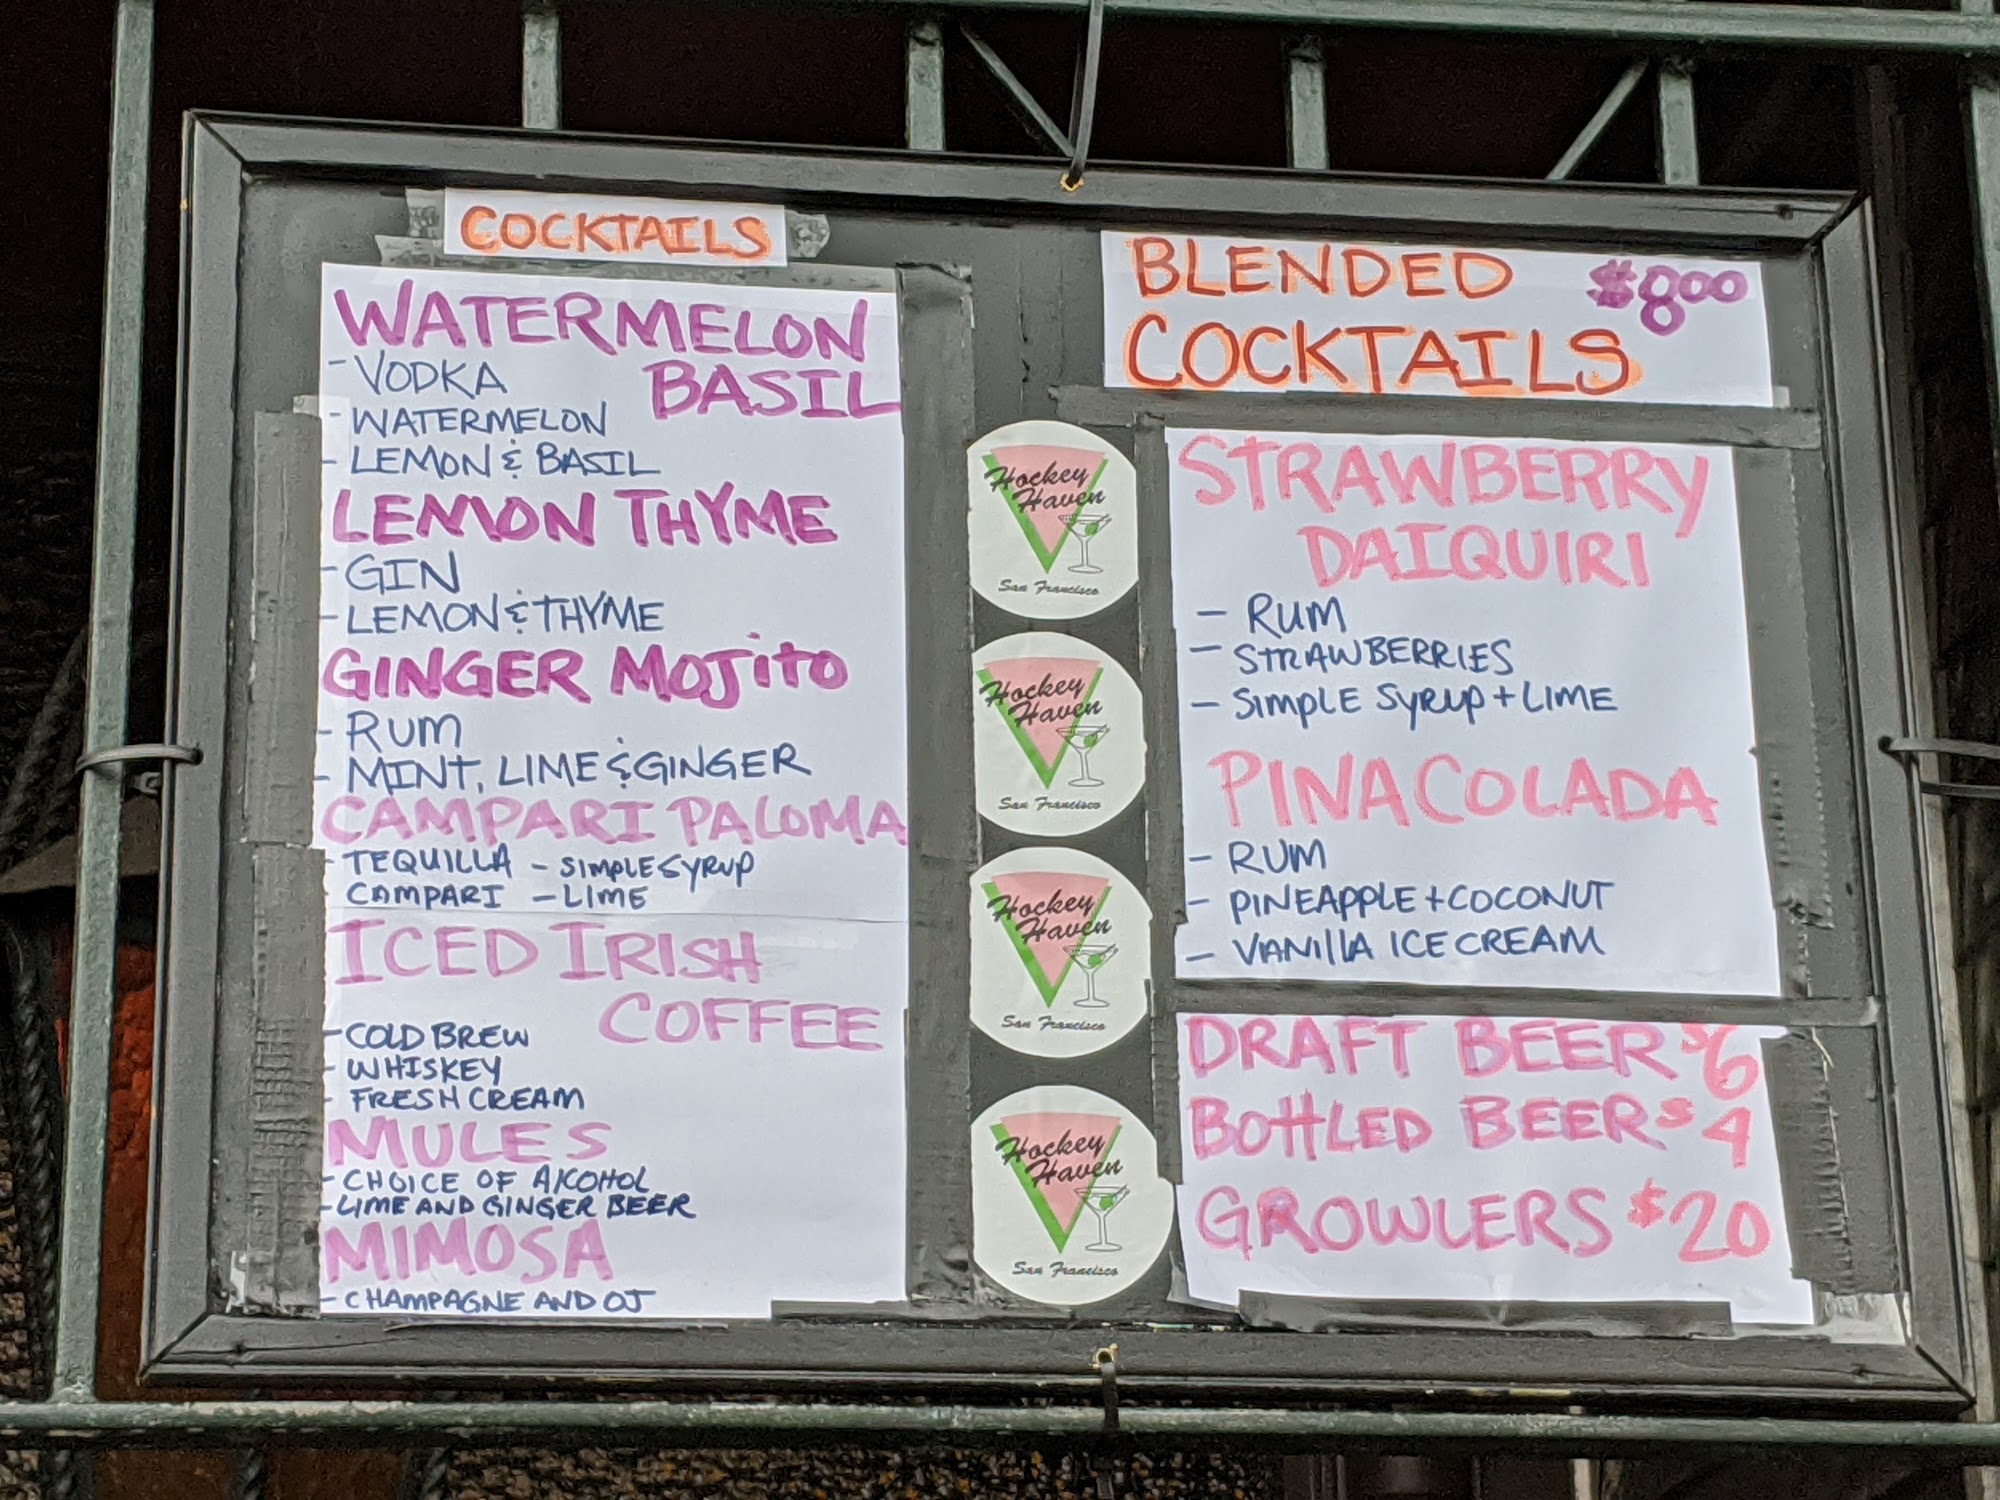 COCKTAILS
WATERMELON
BASIL
- VODKA
- WATERMELON
- LEMON & BASIL
LEMON THYME
- GIN
- LEMON & THYME
GINGER MOJITO
- RUM
- MINT, LIME & GINGER
CAMPARI PALOMA
- TEQUILLA - SIMPLE SYRUP
CAMPARI - LIME
ICED IRISH
COFFEE
- COLD BREW
- WHISKEY
- FRESH CREAM
MULES
- CHOICE OF AlCOHOL
- LIME AND GINGER BEER
MIMOSA
- CHAMPAGNE AND OJ
Hockey
Haven
San Francisco
Hockey
Haven
San Francisco
Hockey
Haven
San Francisco
Hockey
Haven
San Francisco
BLENDED $8.00
COCKTAILS
STRAWBERRY
DAIQUIRI
- RUM
- STRAWBERRIES
- SIMPLE SYRUP + LIME
PINA COLADA
- RUM
- PINEAPPLE + COCONUT
- VANIllA ICE CREAM
DRAFT BEER $6
BOttLED BEER $4
GROWLERS $20